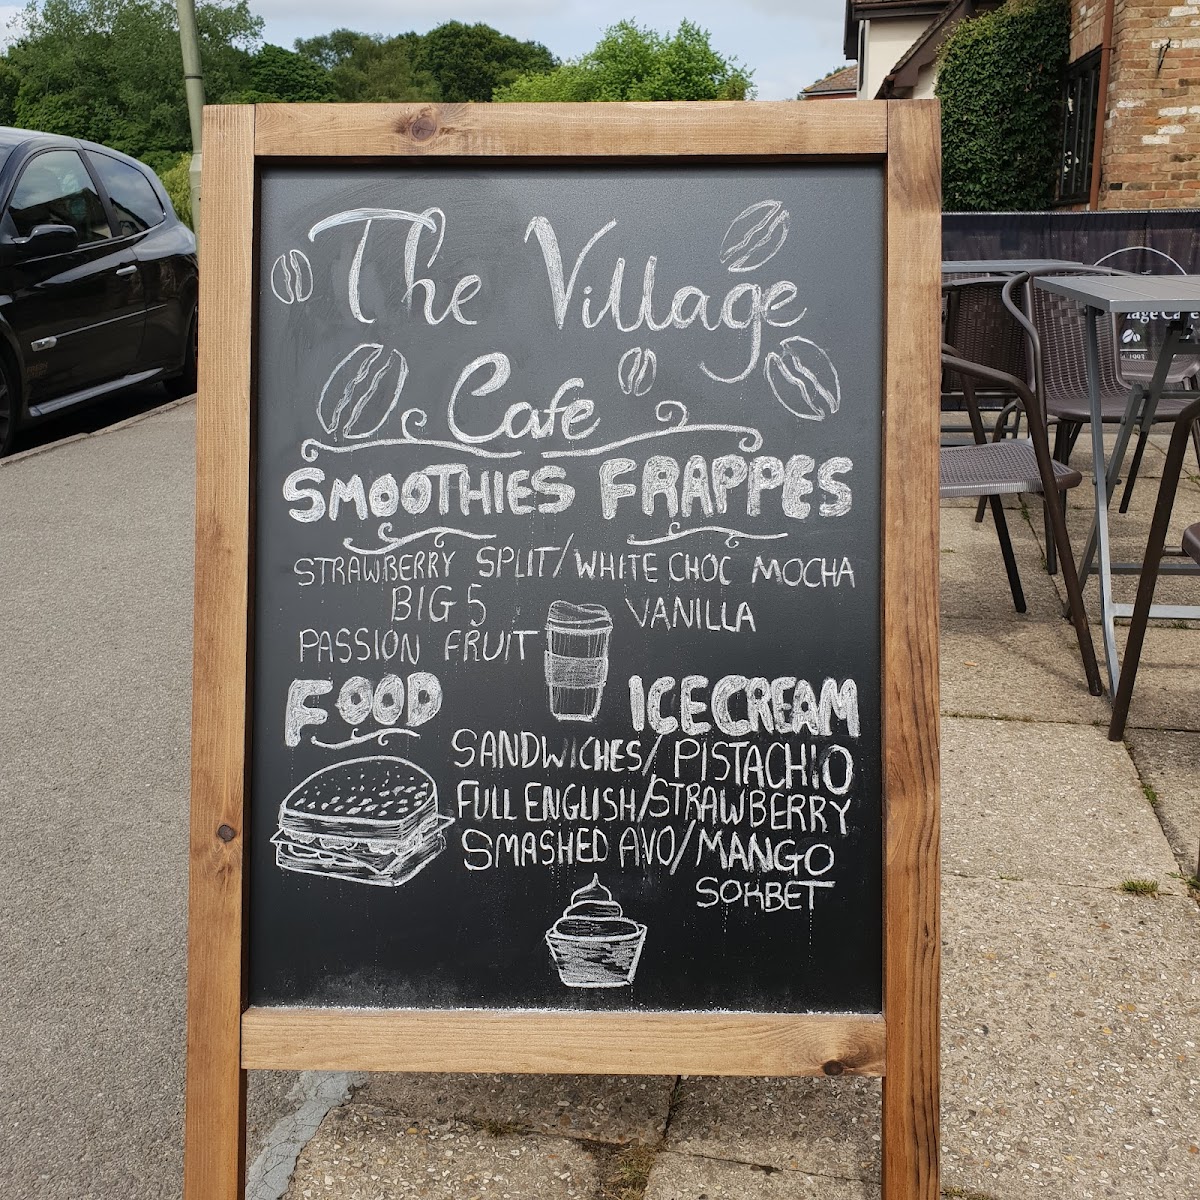 The Village
Cafe
SMOOTHIES FRAPPES
STRAWBERRY SPLIT/WHITE CHOC MOCHA
BIG 5 VANILLA
PASSION FRUIT
FOOD ICECREAM
SANDWICHES/ PISTACHIO
FULL ENGLISH/STRAWBERRY
SMASHED AVO/MANGO
SORBET